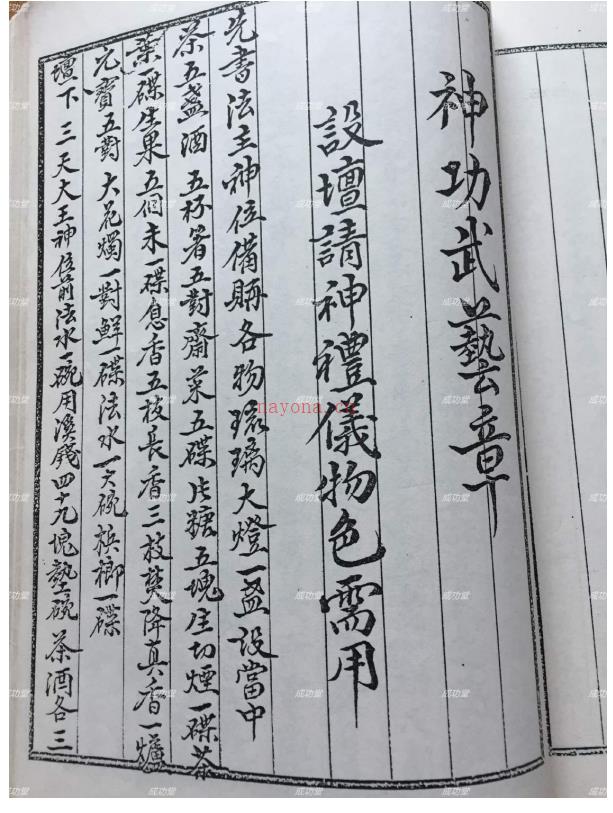 神功武藝章
設壇請神禮儀物色需用
先書法主神位備賬各物琉璃大燈一盞設當中
茶五盞酒五杯箸五對齋菜五碟片糖五塊生切煙一碟茶
葉一碟生果五個米一碟息香五枝長香三枝焚降真香一爐
元寶五對大花燭一對鮮一碟法水一大碗檳榔一碟
壇下三天大王神位前法水一碗用溪錢四十九塊墊碗茶酒各三
nayona.cn
成功堂